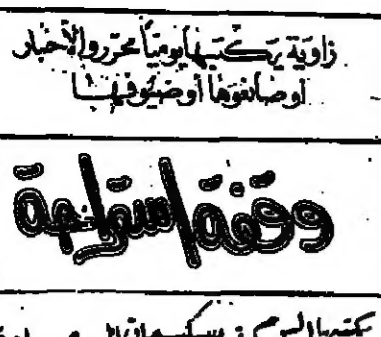 زاوية يكتبها يومياً محررو الأخبار
أو صانعوها أو ضيوفها
وقفة استراحة
يكتبها اليوم